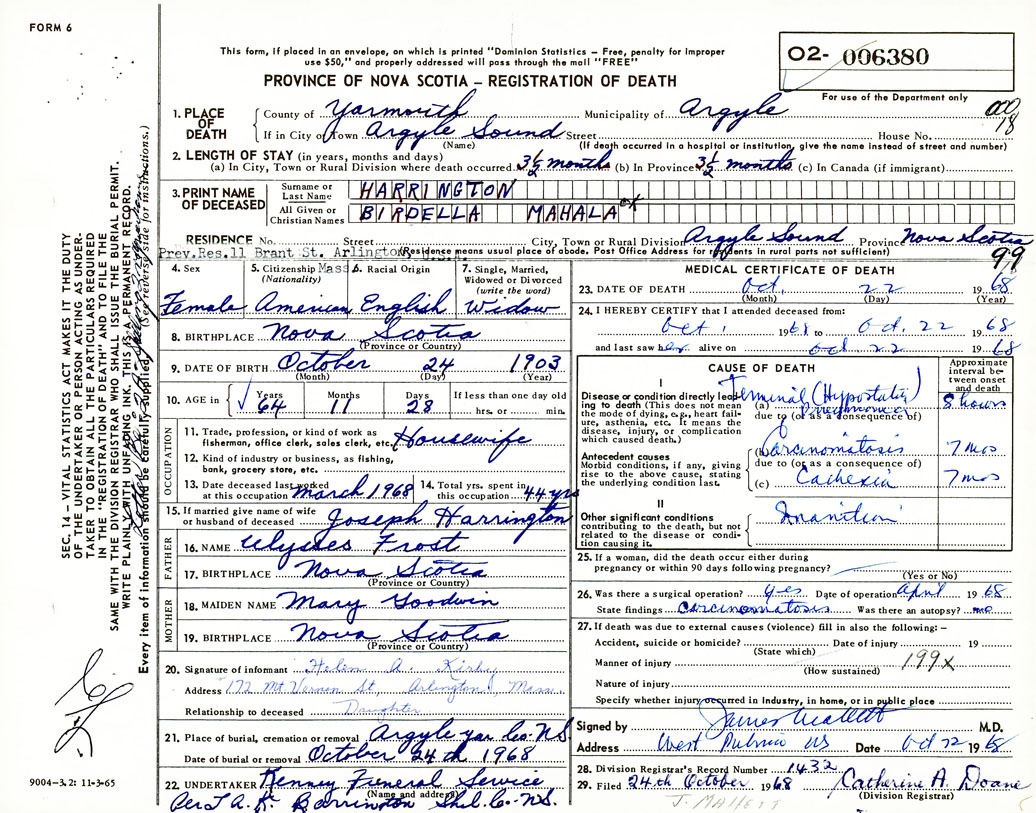 FORM 6
This form, if placed in an envelope, on which is printed "Dominion Statistics – Free, penalty for improper
use $50," and properly addressed will pass through the mail "FREE"
PROVINCE OF NOVA SCOTIA – REGISTRATION OF DEATH
02- 006380
For use of the Department only
18
1. PLACE OF DEATH
County of Yarmouth Municipality of Argyle
If in City or Town Argyle Sound Street House No.
(Name) (If death occurred in a hospital or institution, give the name instead of street and number)
2. LENGTH OF STAY (in years, months and days)
(a) In City, Town or Rural Division where death occurred 3½ months (b) In Province 3½ months (c) In Canada (if immigrant)
3. PRINT NAME OF DECEASED
Surname or Last Name HARRINGTON
All Given or Christian Names BIRDELLA MAHALA
RESIDENCE No. Street City, Town or Rural Division Argyle Sound Province Nova Scotia
Prev.Res.11 Brant St. Arlington, Mass
(Residence means usual place of abode. Post Office Address for residents in rural parts not sufficient)
99
4. Sex
Female
5. Citizenship
(Nationality)
American
6. Racial Origin
English
7. Single, Married,
Widowed or Divorced
(write the word)
Widow
8. BIRTHPLACE Nova Scotia
(Province or Country)
9. DATE OF BIRTH October 24 1903
(Month) (Day) (Year)
10. AGE in Years Months Days If less than one day old
64 11 28 hrs. or min.
OCCUPATION
11. Trade, profession, or kind of work as
fisherman, office clerk, sales clerk, etc. Housewife
12. Kind of industry or business, as fishing,
bank, grocery store, etc.
13. Date deceased last worked
at this occupation March 1968
14. Total yrs. spent in
this occupation 44 yrs
15. If married give name of wife
or husband of deceased Joseph Harrington
FATHER
16. NAME Ulysses Frost
17. BIRTHPLACE Nova Scotia
(Province or Country)
MOTHER
18. MAIDEN NAME Mary Goodwin
19. BIRTHPLACE Nova Scotia
(Province or Country)
20. Signature of informant Helen A. Kirby
Address 172 Mt. Vernon St, Arlington, Mass
Relationship to deceased Daughter
21. Place of burial, cremation or removal Argyle Yar. Co. N.S
Date of burial or removal October 24th 1968
22. UNDERTAKER Kenney Funeral Service
(Name and address)
Barrington Shel. Co. N.S.
MEDICAL CERTIFICATE OF DEATH
23. DATE OF DEATH Oct. 22 1968
(Month) (Day) (Year)
24. I HEREBY CERTIFY that I attended deceased from:
Oct 1 1968 to Oct. 22 1968
and last saw her alive on Oct 22 1968
CAUSE OF DEATH
Approximate
interval be-
tween onset
and death
I
Disease or condition directly lead-
ing to death (This does not mean
the mode of dying, e.g., heart fail-
ure, asthenia, etc. It means the
disease, injury, or complication
which caused death.)
(a) Terminal (Hypostatic) Pneumonia 8 hours
due to (or as a consequence of)
Antecedent causes
Morbid conditions, if any, giving
rise to the above cause, stating
the underlying condition last.
(b) Carcinomatosis 7 mos
due to (or as a consequence of)
(c) Cachexia 7 mos
II
Other significant conditions
contributing to the death, but not
related to the disease or condi-
tion causing it.
Inanition
25. If a woman, did the death occur either during
pregnancy or within 90 days following pregnancy?
(Yes or No)
26. Was there a surgical operation? yes Date of operation April 1968
State findings Carcinomatosis Was there an autopsy? no
27. If death was due to external causes (violence) fill in also the following: –
Accident, suicide or homicide? Date of injury 19
(State which)
Manner of injury 199x
(How sustained)
Nature of injury
Specify whether injury occurred in Industry, in home, or in public place
Signed by M.D.
Address West Pubnico NS Date Oct 22 1968
28. Division Registrar's Record Number 1432
29. Filed 24th October 1968 Catherine A. Doane
(Division Registrar)
J. Mallett
SEC. 14 – VITAL STATISTICS ACT MAKES IT THE DUTY
OF THE UNDERTAKER OR PERSON ACTING AS UNDER-
TAKER TO OBTAIN ALL THE PARTICULARS REQUIRED
IN THE "REGISTRATION OF DEATH" AND TO FILE THE
SAME WITH THE DIVISION REGISTRAR WHO SHALL ISSUE BURIAL PERMIT.
WRITE PLAINLY WITH UNFADING INK. THIS IS A PERMANENT RECORD.
Every item of information should be carefully supplied. (See reverse side for instructions.)
9004-3.2: 11-3-65